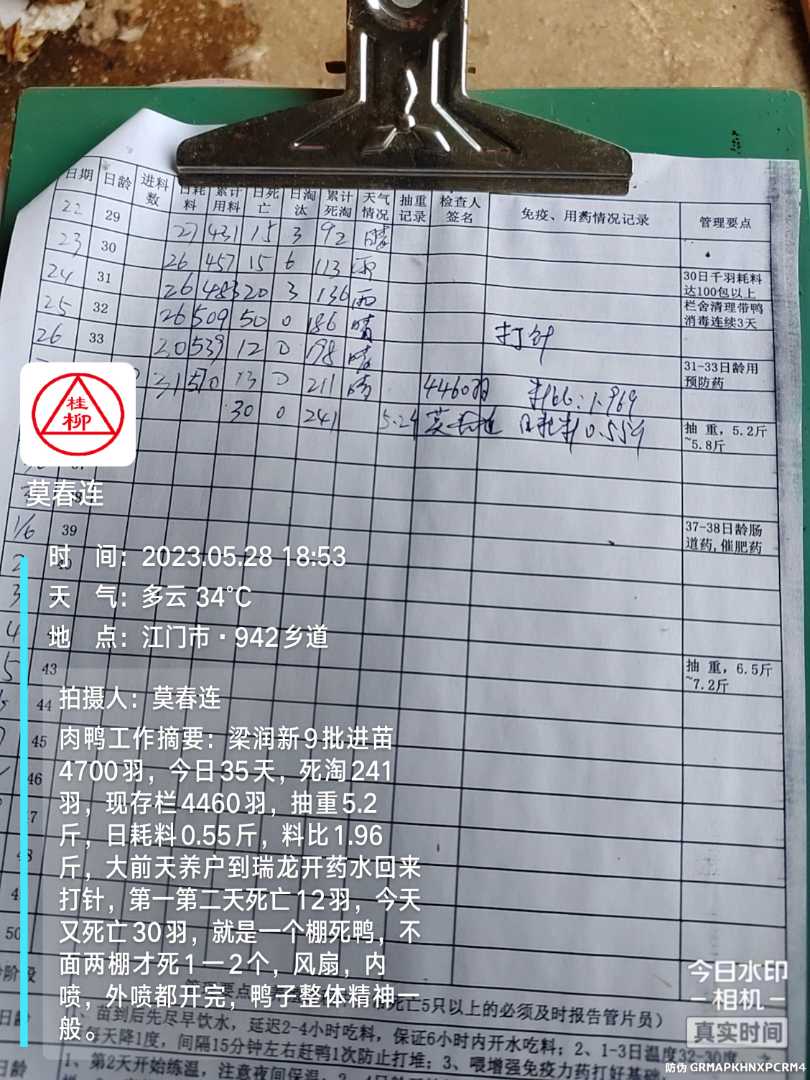 日期 日龄 进料数 日耗料 累计用料 日死亡 日淘汰 累计死淘 天气情况 抽重记录 检查人签名 免疫、用药情况记录 管理要点
22 29 27 431 15 3 92 晴
23 30 26 457 15 6 113 雨
30日千羽耗料
达100包以上
24 31 26 483 20 3 136 雨
栏舍清理带鸭
消毒连续3天
25 32 26 509 50 0 186 晴 打针
26 33 539 12 0 198 晴
31-33日龄用
预防药
31 570 13 0 211 晴 4460羽 料比:1.969
30 0 241 5.2斤 莫春连 日耗料0.55斤
抽 重，5.2斤
~5.8斤
桂柳
莫春连
1/6 39
37-38日龄肠
道药,催肥药
时 间：2023.05.28 18:53
天 气：多云 34°C
地 点：江门市·942乡道
2
3
4
5 43
抽 重，6.5斤
~7.2斤
44
45
46
47
48
50
拍摄人：莫春连
肉鸭工作摘要：梁润新9批进苗
4700羽，今日35天，死淘241
羽，现存栏4460羽，抽重5.2
斤，日耗料0.55斤，料比1.96
斤，大前天养户到瑞龙开药水回来
打针，第一第二天死亡12羽，今天
又死亡30羽，就是一个棚死鸭，不
面两棚才死1一2个，风扇，内
喷，外喷都开完，鸭子整体精神一
般。
管理要点
死亡5只以上的必须及时报告管片员）
日龄
苗到后先尽早饮水，延迟2-4小时吃料，保证6小时内开水吃料；2、1-3日温度32-30度
天降1度，间隔15分钟左右赶鸭1次防止打堆；3、喂增强免疫力药打好基础
1、第2天开始练温，注意夜间保温；
今日水印
相机
真实时间
防伪 GRMAPKHNXPCRM4